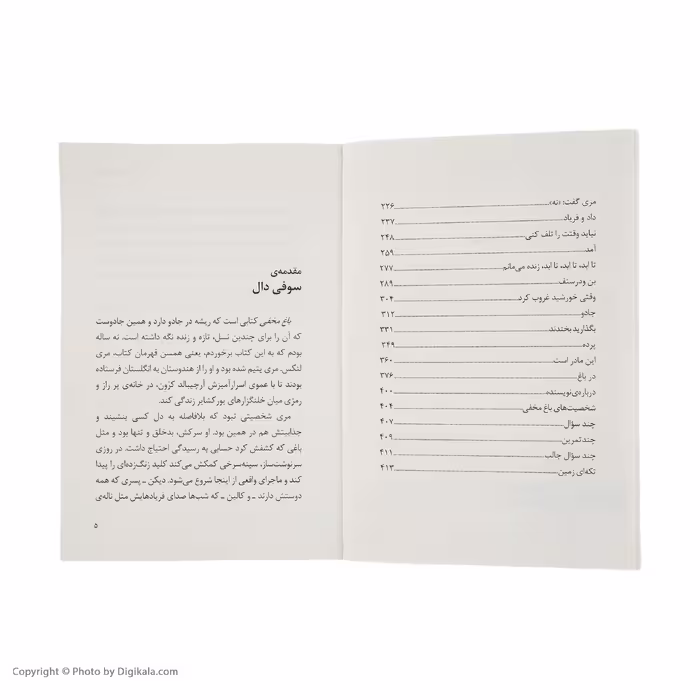 مری گفت: «نه»	۲۲۶
داد و فریاد	۲۳۷
نباید وقتت را تلف کنی	۲۴۸
آمد	۲۵۹
تا ابد، تا ابد، تا ابد، زنده می‌مانم	۲۷۷
بن ودرستف	۲۸۹
وقتی خورشید غروب کرد	۳۰۴
جادو	۳۱۲
بگذارید بخندند	۳۳۱
پرده	۳۴۹
این مادر است	۳۶۰
در باغ	۳۷۶
درباره‌ی نویسنده	۴۰۰
شخصیت‌های باغ مخفی	۴۰۴
چند سؤال	۴۰۷
چند تمرین	۴۰۹
چند سؤال جالب	۴۱۱
تکه‌ای زمین	۴۱۳
مقدمه‌ی
سوفی دال
باغ مخفی کتابی است که ریشه در جادو دارد و همین جادوست
که آن را برای چندین نسل، تازه و زنده نگه داشته است. نه ساله
بودم که به این کتاب برخوردم، یعنی همسن قهرمان کتاب، مری
لنکس. مری یتیم شده بود و او را از هندوستان به انگلستان فرستاده
بودند تا با عموی اسرارآمیزش آرچیبالد کرَون، در خانه‌ی پر راز و
رمزی میان خلنگزارهای یورکشایر زندگی کند.
مری شخصیتی نبود که بلافاصله به دل کسی بنشیند و
جذابیتش هم در همین بود. او سرکش، بدخلق و تنها بود و مثل
باغی که کشفش کرد حسابی به رسیدگی احتیاج داشت. در روزی
سرنوشت‌ساز، سینه‌سرخی کمکش می‌کند کلید زنگ‌زده‌ای را پیدا
کند و ماجرای واقعی از اینجا شروع می‌شود. دیکن ـ پسری که همه
دوستش دارند ـ و کالین ـ که شب‌ها صدای فریادهایش مثل ناله‌ی
۵
Copyright © Photo by Digikala.com